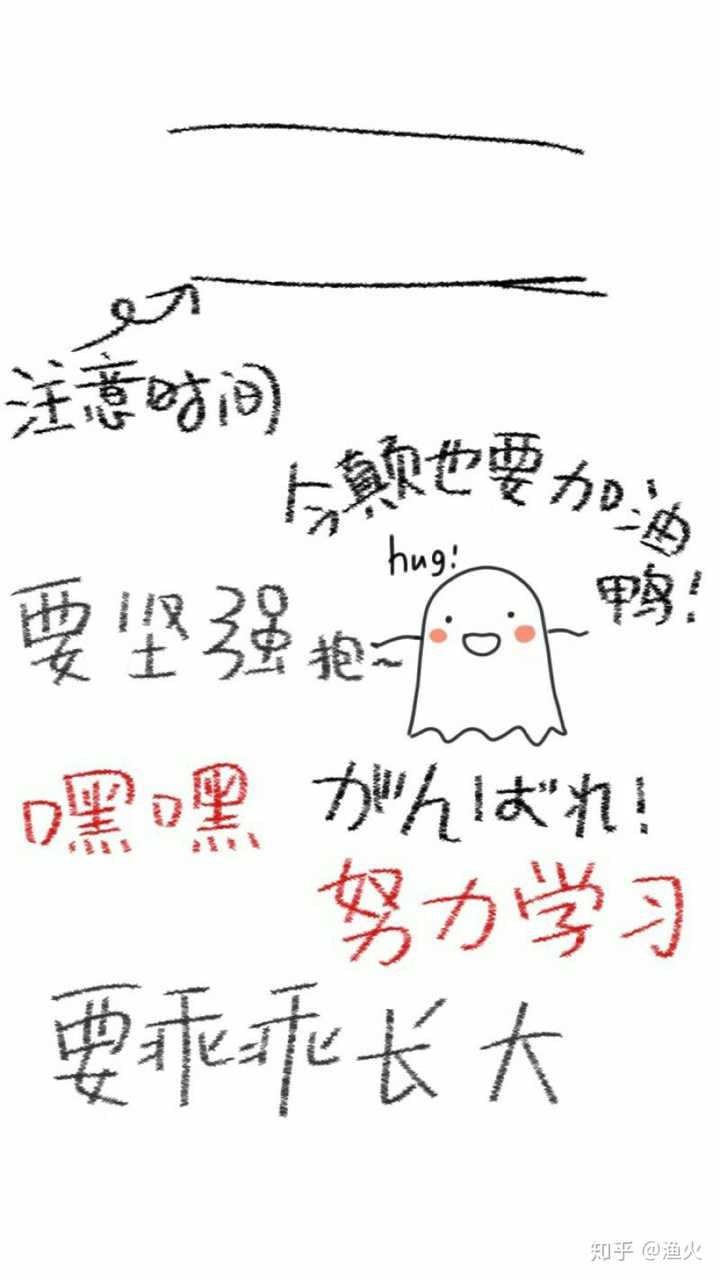 注意时间
今颠也要加油鸭!
hug!
要坚强
抱~
嘿嘿
がんばれ!
努力学习
要乖乖长大
知乎 @渔火